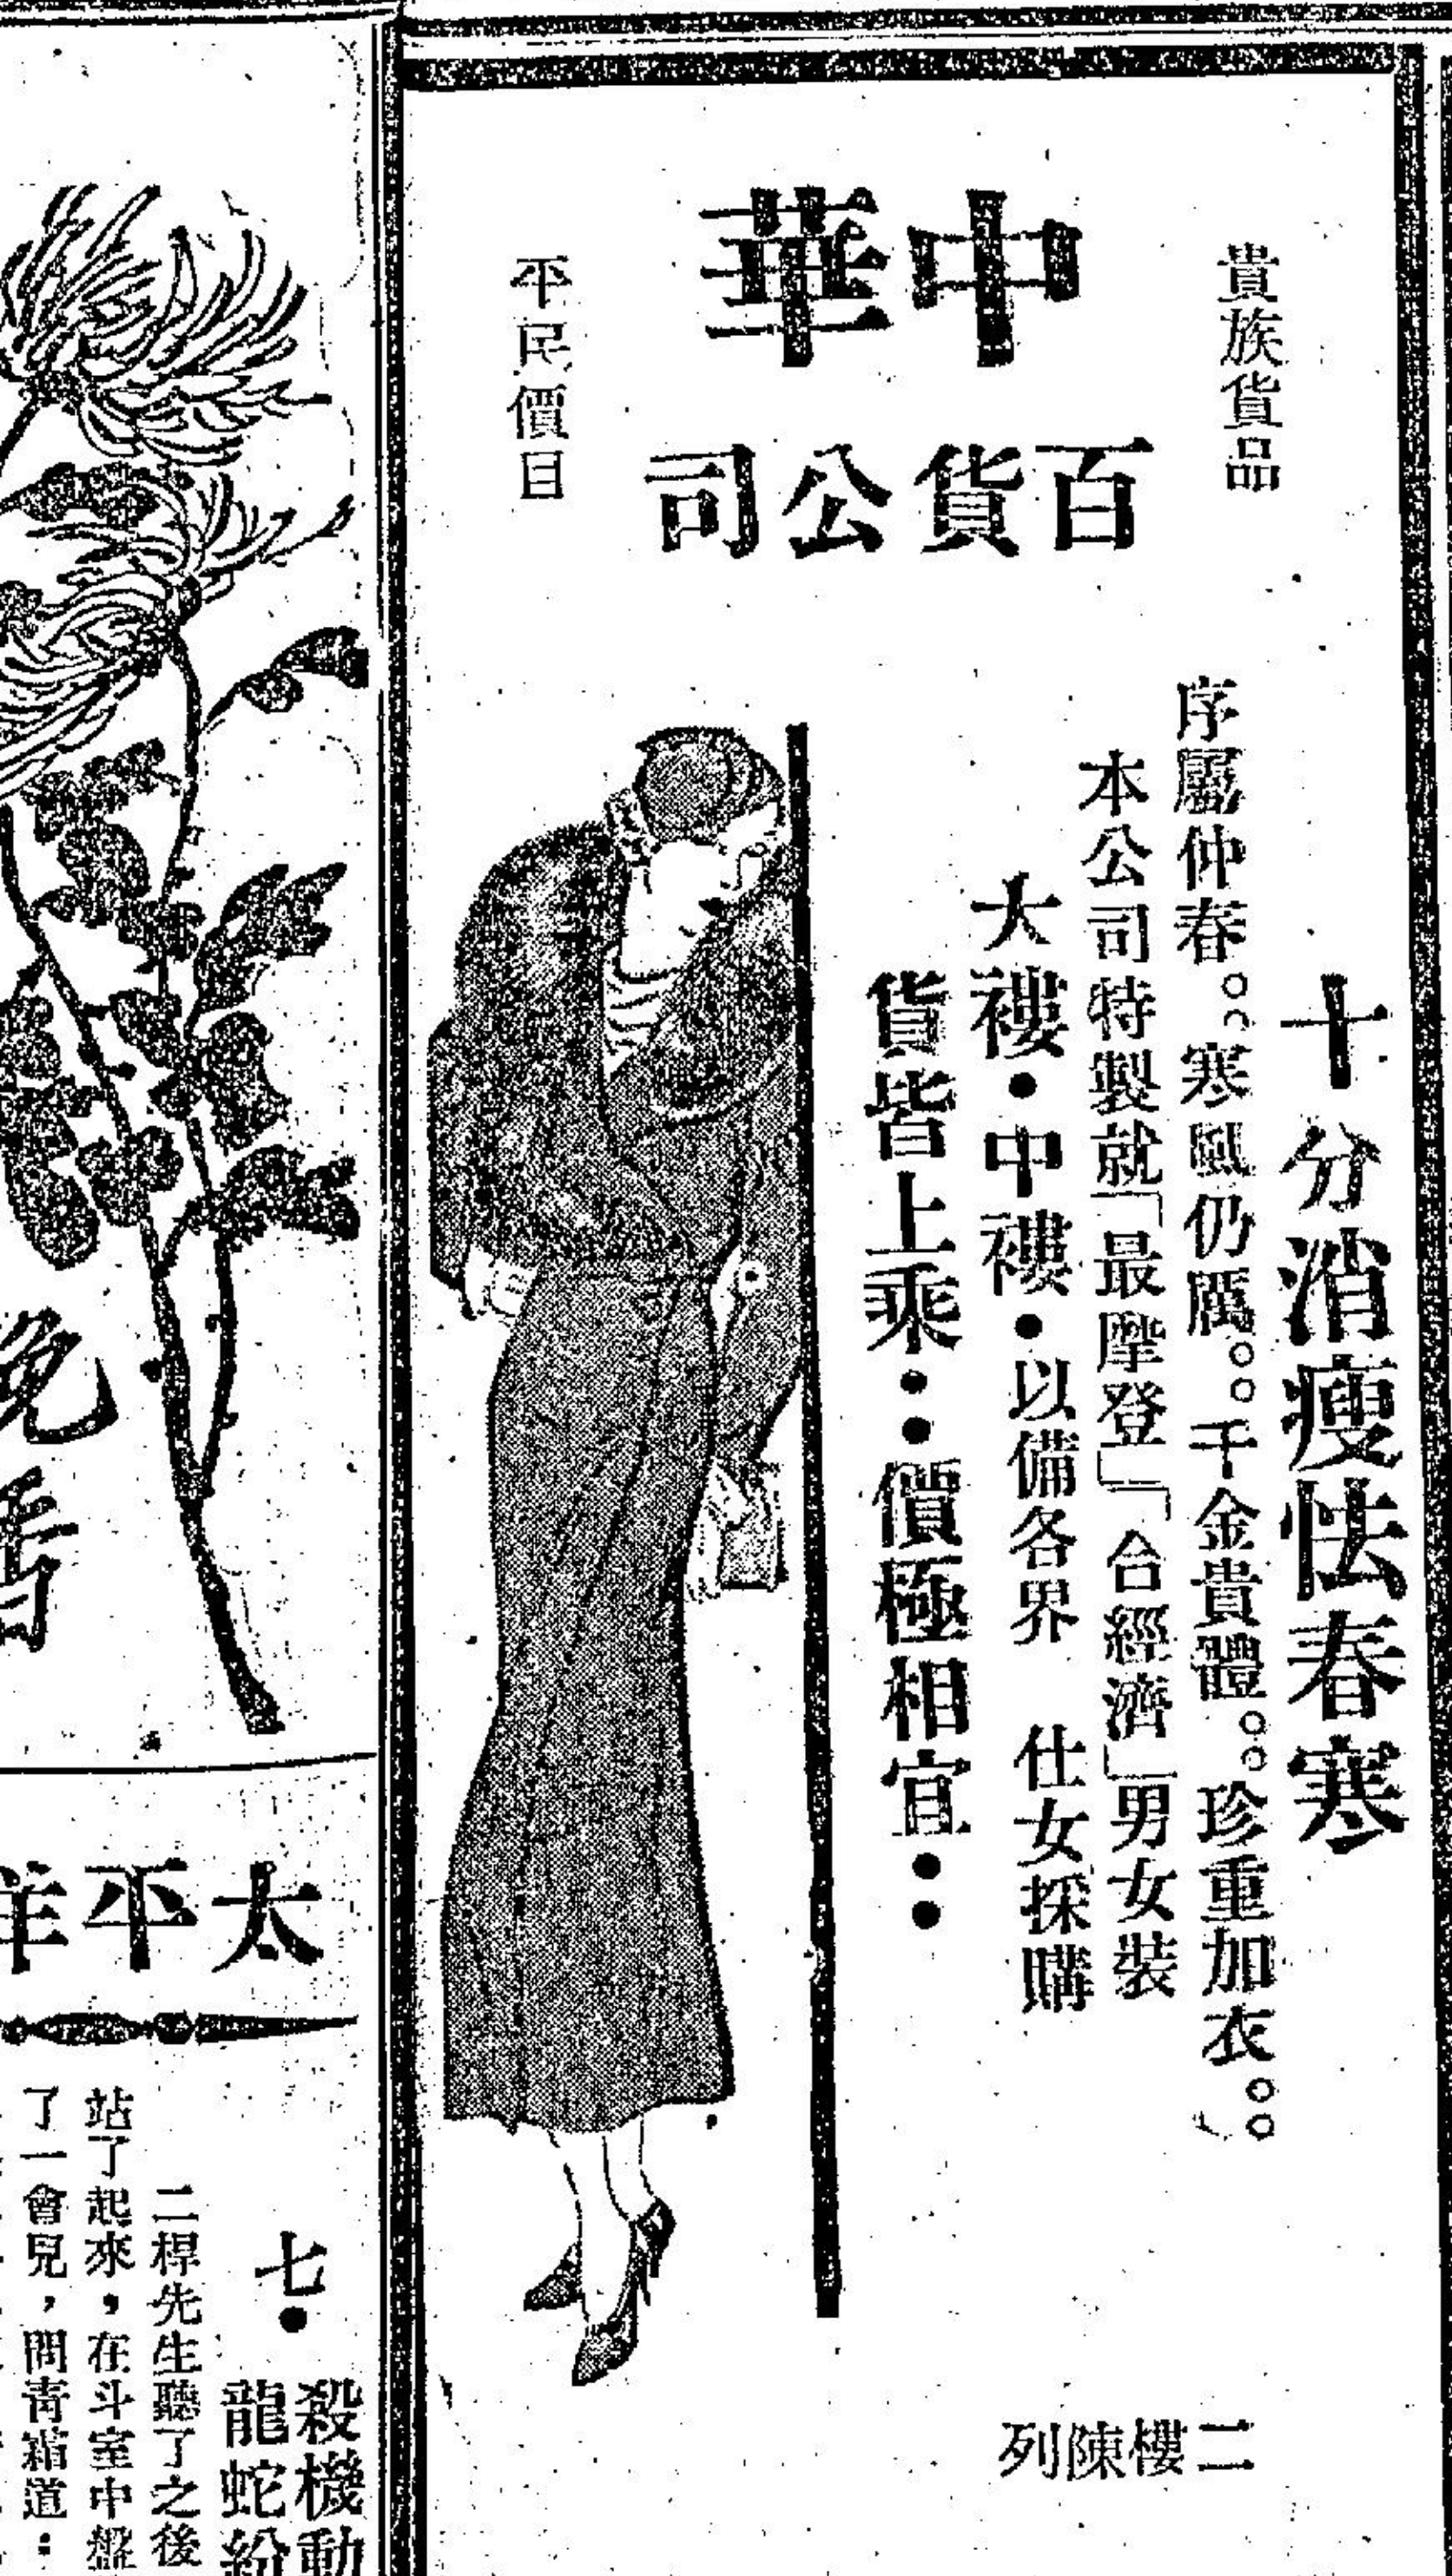 貴族貨品
中華
百貨公司
平民價目
十分消瘦怯春寒
序屬仲春。。寒風仍厲。。千金貴體。。珍重加衣。。
本公司特製就「最摩登」「合經濟」男女裝
大褸•中褸•以備各界 仕女採購
貨皆上乘••價極相宜••
二樓陳列
太平洋
七•
殺機動
龍蛇紛
二桿先生聽了之後
站了起來，在斗室中盤
了一會兒，問青霜道：